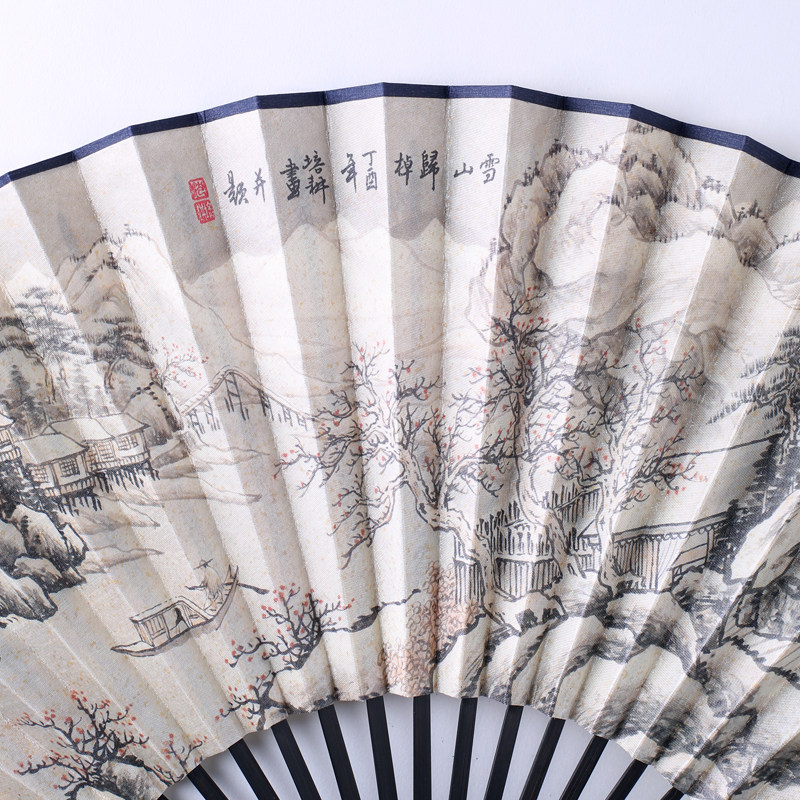 雪山歸棹丁酉年培耕畫并题